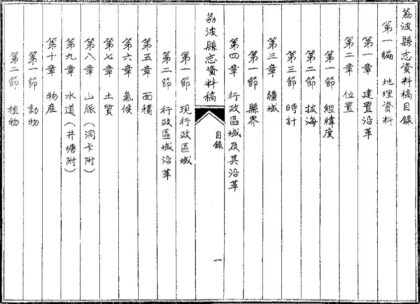 荔波縣志資料稿目錄
第一編 地理資料
第一章 建置沿革
第二章 位置
第一節 經緯度
第二節 拔海
第三節 時計
第三章 疆域
第一節 縣界
第四章 行政區域及其沿革
荔波縣志資料稿 目錄 一
第一節 現行政區域
第二節 行政區域沿革
第五章 面積
第六章 氣候
第七章 土質
第八章 山脈(洞卡附)
第九章 水道(井塘附)
第十章 物產
第一節 動物
第二節 植物